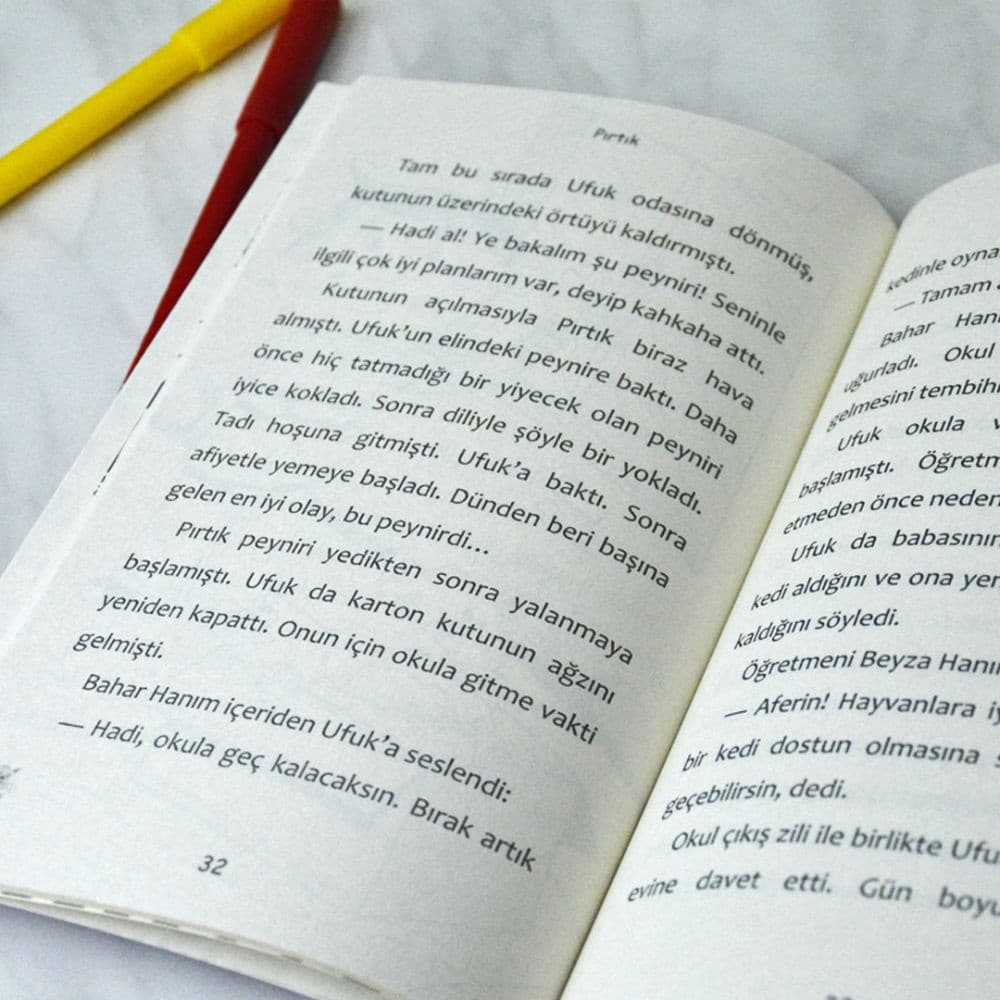 Pırtık
Tam bu sırada Ufuk odasına dönmüş,
kutunun üzerindeki örtüyü kaldırmıştı.
— Hadi al! Ye bakalım şu peyniri! Seninle
ilgili çok iyi planlarım var, deyip kahkaha attı.
Kutunun açılmasıyla Pırtık biraz hava
almıştı. Ufuk’un elindeki peynire baktı. Daha
önce hiç tatmadığı bir yiyecek olan peyniri
iyice kokladı. Sonra diliyle şöyle bir yokladı.
Tadı hoşuna gitmişti. Ufuk’a baktı. Sonra
afiyetle yemeye başladı. Dünden beri başına
gelen en iyi olay, bu peynirdi...
Pırtık peyniri yedikten sonra yalanmaya
başlamıştı. Ufuk da karton kutunun ağzını
yeniden kapattı. Onun için okula gitme vakti
gelmişti.
Bahar Hanım içeriden Ufuk’a seslendi:
— Hadi, okula geç kalacaksın. Bırak artık
32
kedinle oyna
— Tamam
Bahar Hanı
uğurladı. Okul
gelmesini tembih
Ufuk okula
başlamıştı. Öğretm
etmeden önce neden
Ufuk da babasının
kedi aldığını ve ona yem
kaldığını söyledi.
Öğretmeni Beyza Hanı
— Aferin! Hayvanlara iy
bir kedi dostun olmasına
geçebilirsin, dedi.
Okul çıkış zili ile birlikte Ufu
evine davet etti. Gün boyu